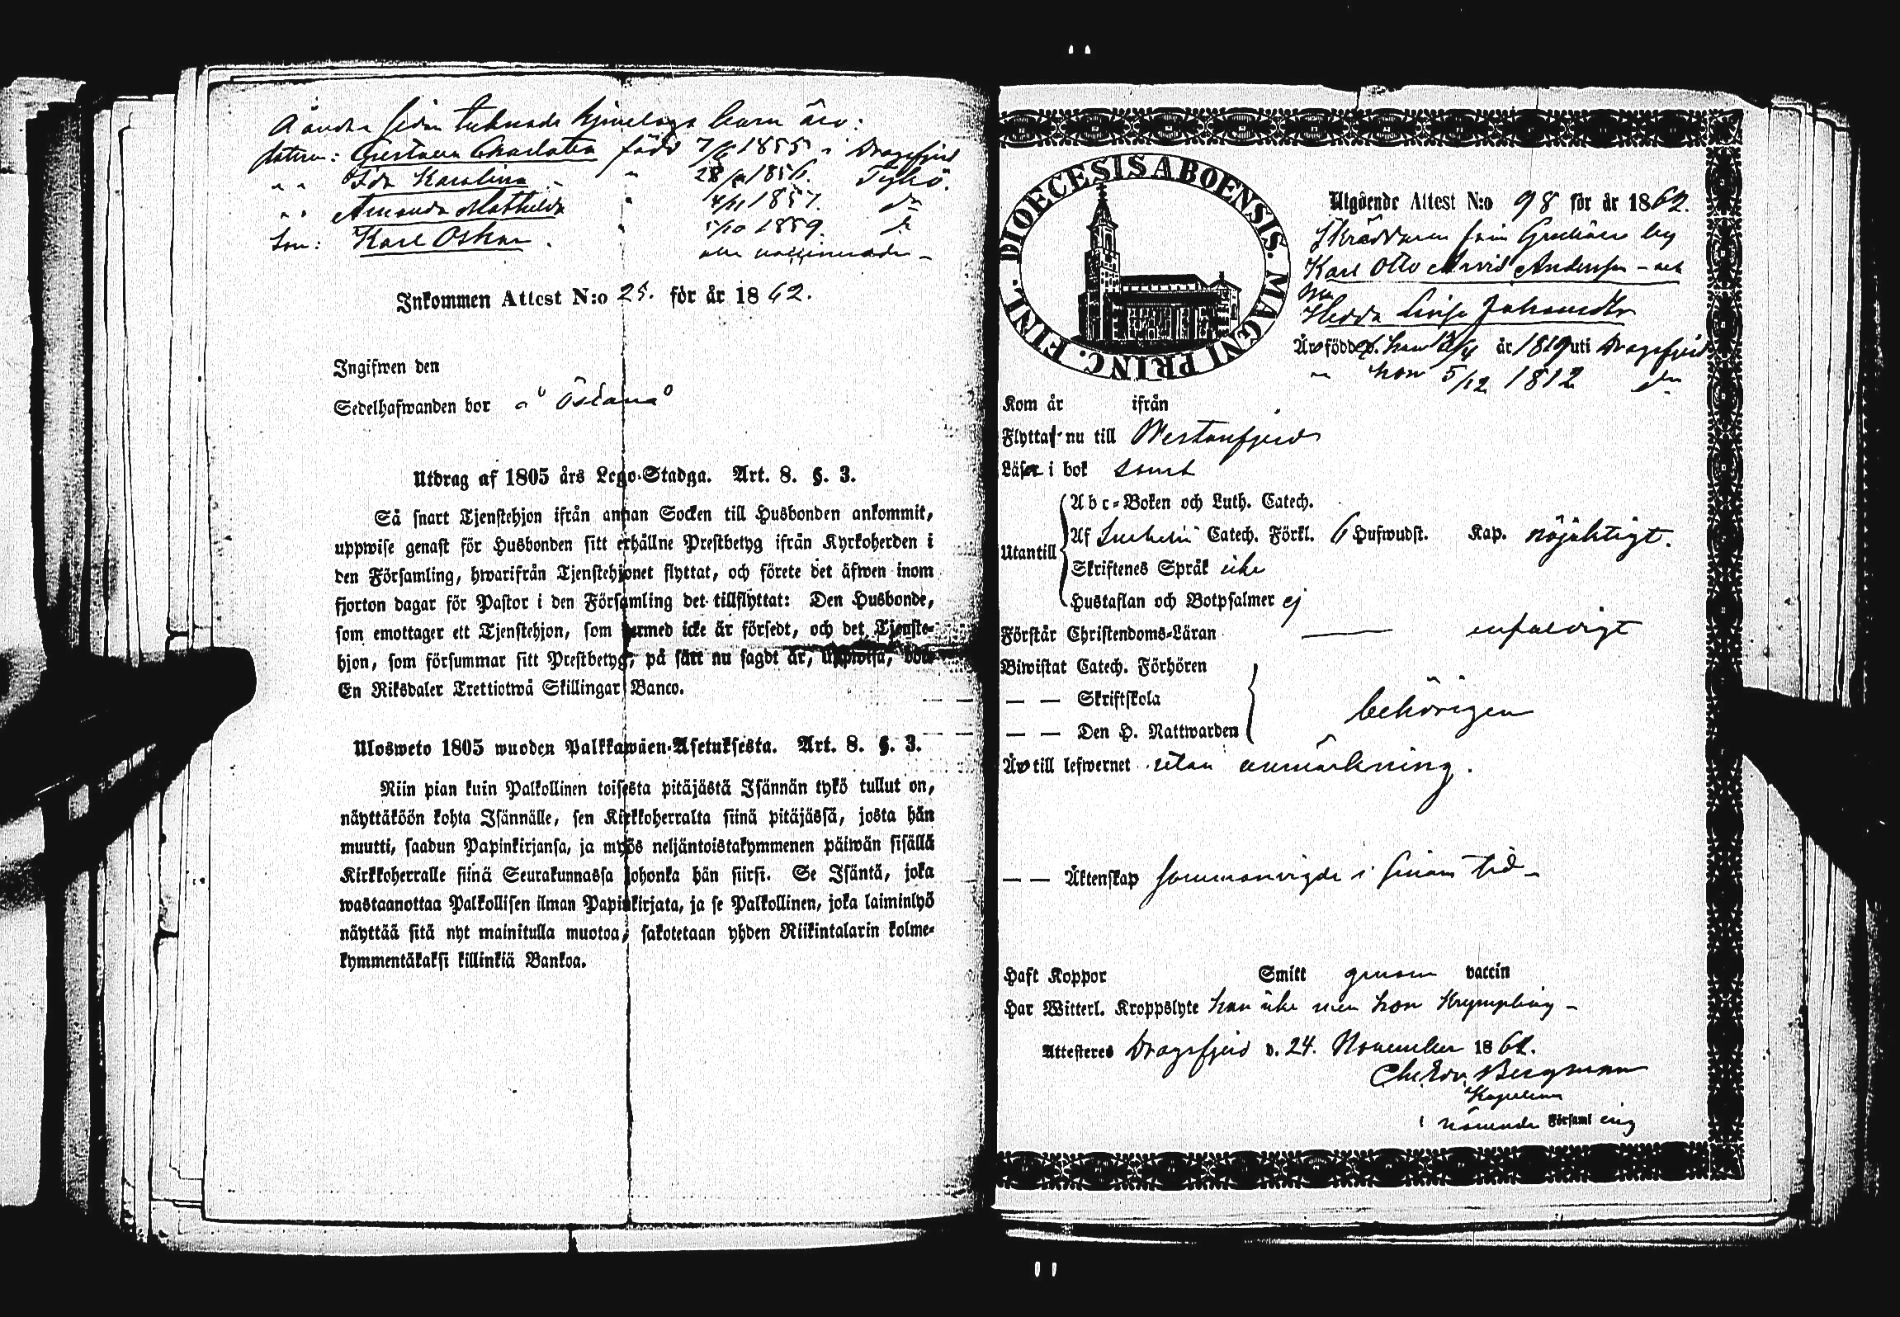 Å andra sidan tecknade hjonelags barn äro:
dottern: Gustava Charlotta född 7/6 1855 i Dragsfjerd
" " Ida Karolina " 28/ 1856. Tykö.
" " Amanda Mathilda " 4/11 1857. do
Son: Karl Oskar. " 1/10 1859. do
alla vaccinerade –
Inkommen Attest N:o 25. för år 1862.
Ingifwen den
Sedelhafwanden bor å "Östanå"
Utdrag af 1805 års Lego-Stadga. Art. 8. §. 3.
Så snart Tjenstehjon ifrån annan Socken till Husbonden ankommit,
uppwise genast för Husbonden sitt erhållne Prestbetyg ifrån Kyrkoherden i
den Församling, hwarifrån Tjenstehjonet flyttat, och förete det äfwen inom
fjorton dagar för Pastor i den Församling det tillflyttat: Den Husbonde,
som emottager ett Tjenstehjon, som hermed icke är försedt, och det Tjenste-
hjon, som försummar sitt Prestbetyg, på sätt nu sagdt är, uppwisa, böte
En Riksdaler Trettiotwå Skillingar Banco.
Ulosweto 1805 wuoden Palkkawäen-Asetuksesta. Art. 8. §. 3.
Niin pian kuin Palkollinen toisesta pitäjästä Isännän tykö tullut on,
näyttäköön kohta Isännälle, sen Kirkkoherralta siinä pitäjässä, josta hän
muutti, saadun Papinkirjansa, ja myös neljäntoistakymmenen päiwän sisällä
Kirkkoherralle siinä Seurakunnassa johonka hän siirsi. Se Isäntä, joka
wastaanottaa Palkollisen ilman Papinkirjata, ja se Palkollinen, joka laiminlyö
näyttää sitä nyt mainitulla muotoa, sakotetaan yhden Riikintalarin kolme-
kymmentäkaksi killinkiä Bankoa.
DIOECESIS ABOENSIS. MAGNI PRINC. FINL.
Utgående Attest N:o 98 för år 1862.
Skräddaren från
Karl Otto Arvid Andersson – och
Hedda Lovisa Johansdtr
Äro födde d. han /4 år 1819 uti Dragsfjerd
" hon 5/12 1812 do
Kom år ifrån
Flyttar nu till Westanfjerd
Läser i bok samt
Utantill
A b c-Boken och Luth. Catech.
Af Catech. Förkl. 6 Hufwudst. Kap. nöjaktigt.
Skriftenes Språk icke
Hustaflan och Botpsalmer ej
Förstår Christendoms-Läran — enfaldigt
Biwistat Catech. Förhören
— — Skriftskola
— — Den H. Nattwarden
behörigen
Äro till lefwernet utan anmärkning.
— — Äktenskap sammanvigde i sinom tid –
Haft Koppor Smitt genom vaccin
Har Witterl. Kroppslyte han icke men hon Krympling –
Attesteres Dragsfjerd d. 24. November 1862.
Chr. Edv. Bergman
Kapellan
i nämnde Församling